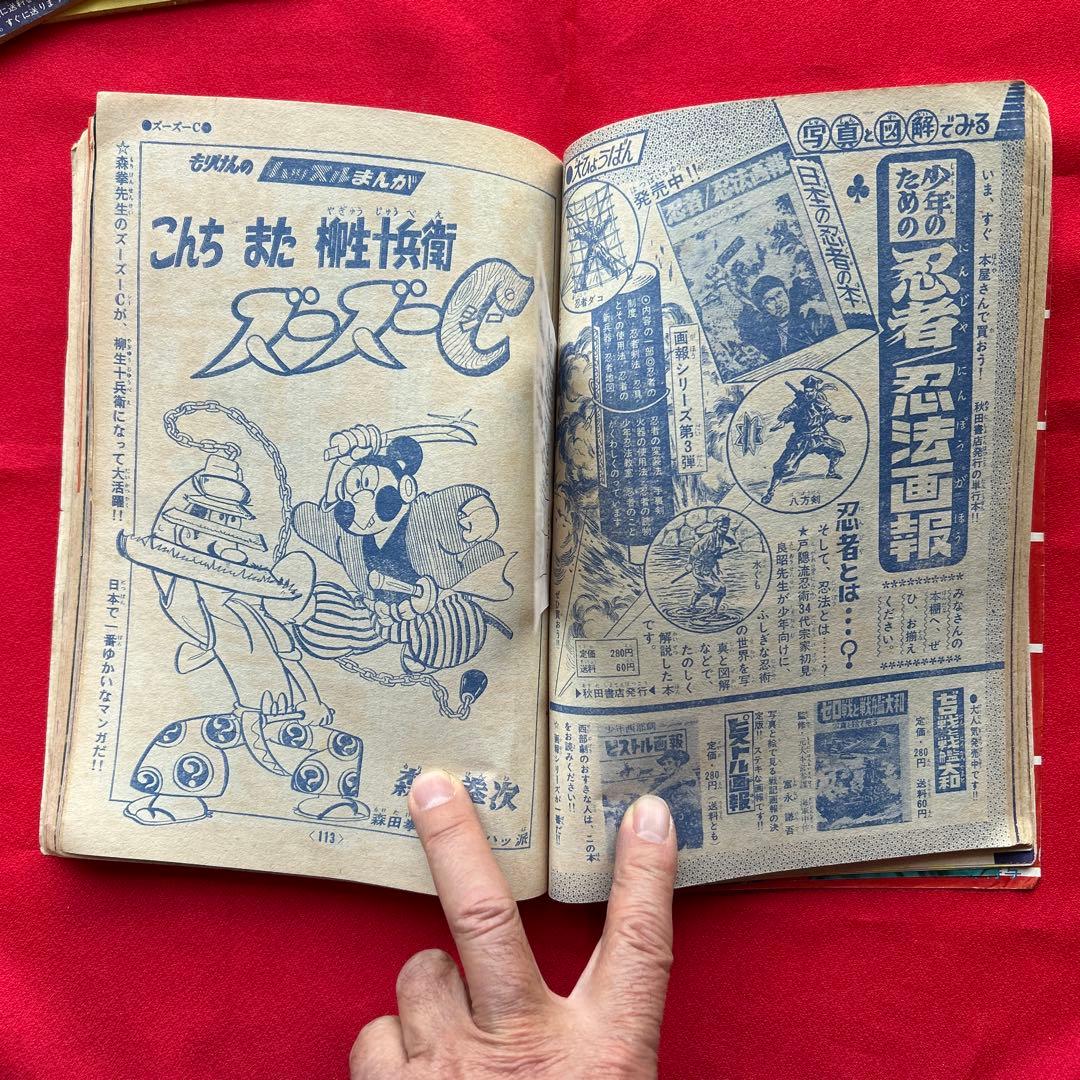 すぐに送りま
●ズーズーC●
もりけんの ハッスルまんが
こんち また 柳生十兵衛
やぎゅう じゅうべえ
ズーズーC
☆森拳先生のズーズーCが、柳生十兵衛になって大活躍!!
日本で一番ゆかいなマンガだ!!
森
次
森田拳
ハッ派
〈113〉
写真と図解でみる
いま、すぐ 本屋さんで買おう! 秋田書店発行の単行本!!
少年のための
忍者/忍法画報
にんじゃ にんぽうがほう
みなさんの
本棚へ、ぜ
ひ、お揃え
ください。
●大ひょうばん
発売中!!
日本の忍者の本
忍者/忍法画報
忍者ダコ
◎内容の一部◎忍者の
制度・忍者剣法・忍具
とその使用法・忍者の
新兵器・忍者地図・
忍者の変装法・手裏剣
火器の使用法・忍者の読物
少年忍法教室・忍者のこと
がくわしくのっています。
画報シリーズ第3弾
八方剣
水ぐも
忍者とは…?
そして、忍法とは……?
★戸隠流忍術34代宗家初見
良昭先生が少年向けに、
ふしぎな忍術
の世界を写
真と図解
などで、
たのしく
解説した本
です。
定価 280円
送料 60円
▶秋田書店発行◀
●大人気発売中です!!
ゼロ戦戦艦大和
定価・280円 送料60円
ゼロ戦と戦艦大和
富永謙吾
写真と絵で見る戦記画報の決
定版!! ステキな画報です!!
ピストル画報
定価・280円 送料とも
少年西部劇
ピストル画報
西部劇のおすきな人は、この本
をお読みください!!
☆画報シリーズが一番だ!!